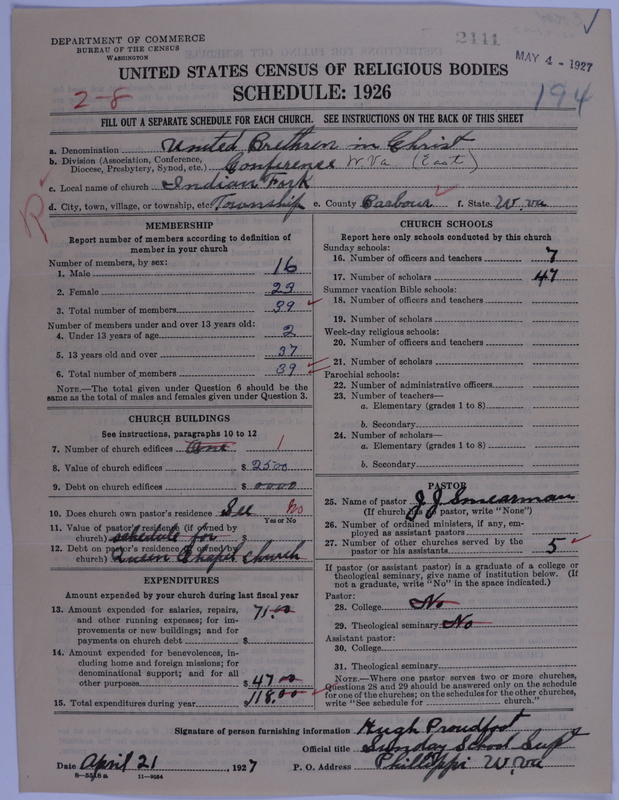 DEPARTMENT OF COMMERCE
BUREAU OF THE CENSUS
WASHINGTON
2111
MAY 4 - 1927
UNITED STATES CENSUS OF RELIGIOUS BODIES
SCHEDULE: 1926
2-8
194
FILL OUT A SEPARATE SCHEDULE FOR EACH CHURCH. SEE INSTRUCTIONS ON THE BACK OF THIS SHEET
a. Denomination United Brethren in Christ
b. Division (Association, Conference, Diocese, Presbytery, Synod, etc.) Conference W Va (East)
c. Local name of church Indian Fork
d. City, town, village, or township, etc. Township e. County Barbour f. State W. va
R
MEMBERSHIP
Report number of members according to definition of
member in your church
Number of members, by sex:
1. Male 16
2. Female 23
3. Total number of members 39
Number of members under and over 13 years old:
4. Under 13 years of age 2
5. 13 years old and over 37
6. Total number of members 39
NOTE.—The total given under Question 6 should be the
same as the total of males and females given under Question 3.
CHURCH BUILDINGS
See instructions, paragraphs 10 to 12
7. Number of church edifices One 1
8. Value of church edifices $ 2500
9. Debt on church edifices $ 0000
10. Does church own pastor's residence See No
Yes or No
11. Value of pastor's residence (if owned by
church) schedule for $
12. Debt on pastor's residence (if owned by
church) Queen Chapel Church
EXPENDITURES
Amount expended by your church during last fiscal year
13. Amount expended for salaries, repairs,
and other running expenses; for im-
provements or new buildings; and for
payments on church debt $ 71.00
14. Amount expended for benevolences, in-
cluding home and foreign missions; for
denominational support; and for all
other purposes $ 47.00
15. Total expenditures during year $ 118.00
CHURCH SCHOOLS
Report here only schools conducted by this church
Sunday schools:
16. Number of officers and teachers 7
17. Number of scholars 47
Summer vacation Bible schools:
18. Number of officers and teachers
19. Number of scholars
Week-day religious schools:
20. Number of officers and teachers
21. Number of scholars
Parochial schools:
22. Number of administrative officers
23. Number of teachers—
a. Elementary (grades 1 to 8)
b. Secondary
24. Number of scholars—
a. Elementary (grades 1 to 8)
b. Secondary
PASTOR
25. Name of pastor J. J. Smearman
(If church has no pastor, write "None")
26. Number of ordained ministers, if any, em-
ployed as assistant pastors
27. Number of other churches served by the
pastor or his assistants 5
If pastor (or assistant pastor) is a graduate of a college or
theological seminary, give name of institution below. (If
not a graduate, write "No" in the space indicated.)
Pastor:
28. College No
29. Theological seminary No
Assistant pastor:
30. College
31. Theological seminary
NOTE.—Where one pastor serves two or more churches,
Questions 28 and 29 should be answered only on the schedule
for one of the churches; on the schedules for the other churches,
write "See schedule for church."
Signature of person furnishing information Hugh Proudfoot
Official title Sunday School Supt
Date April 21, 1927 P. O. Address Phillippi W. Va
8-5518 a 11-9554